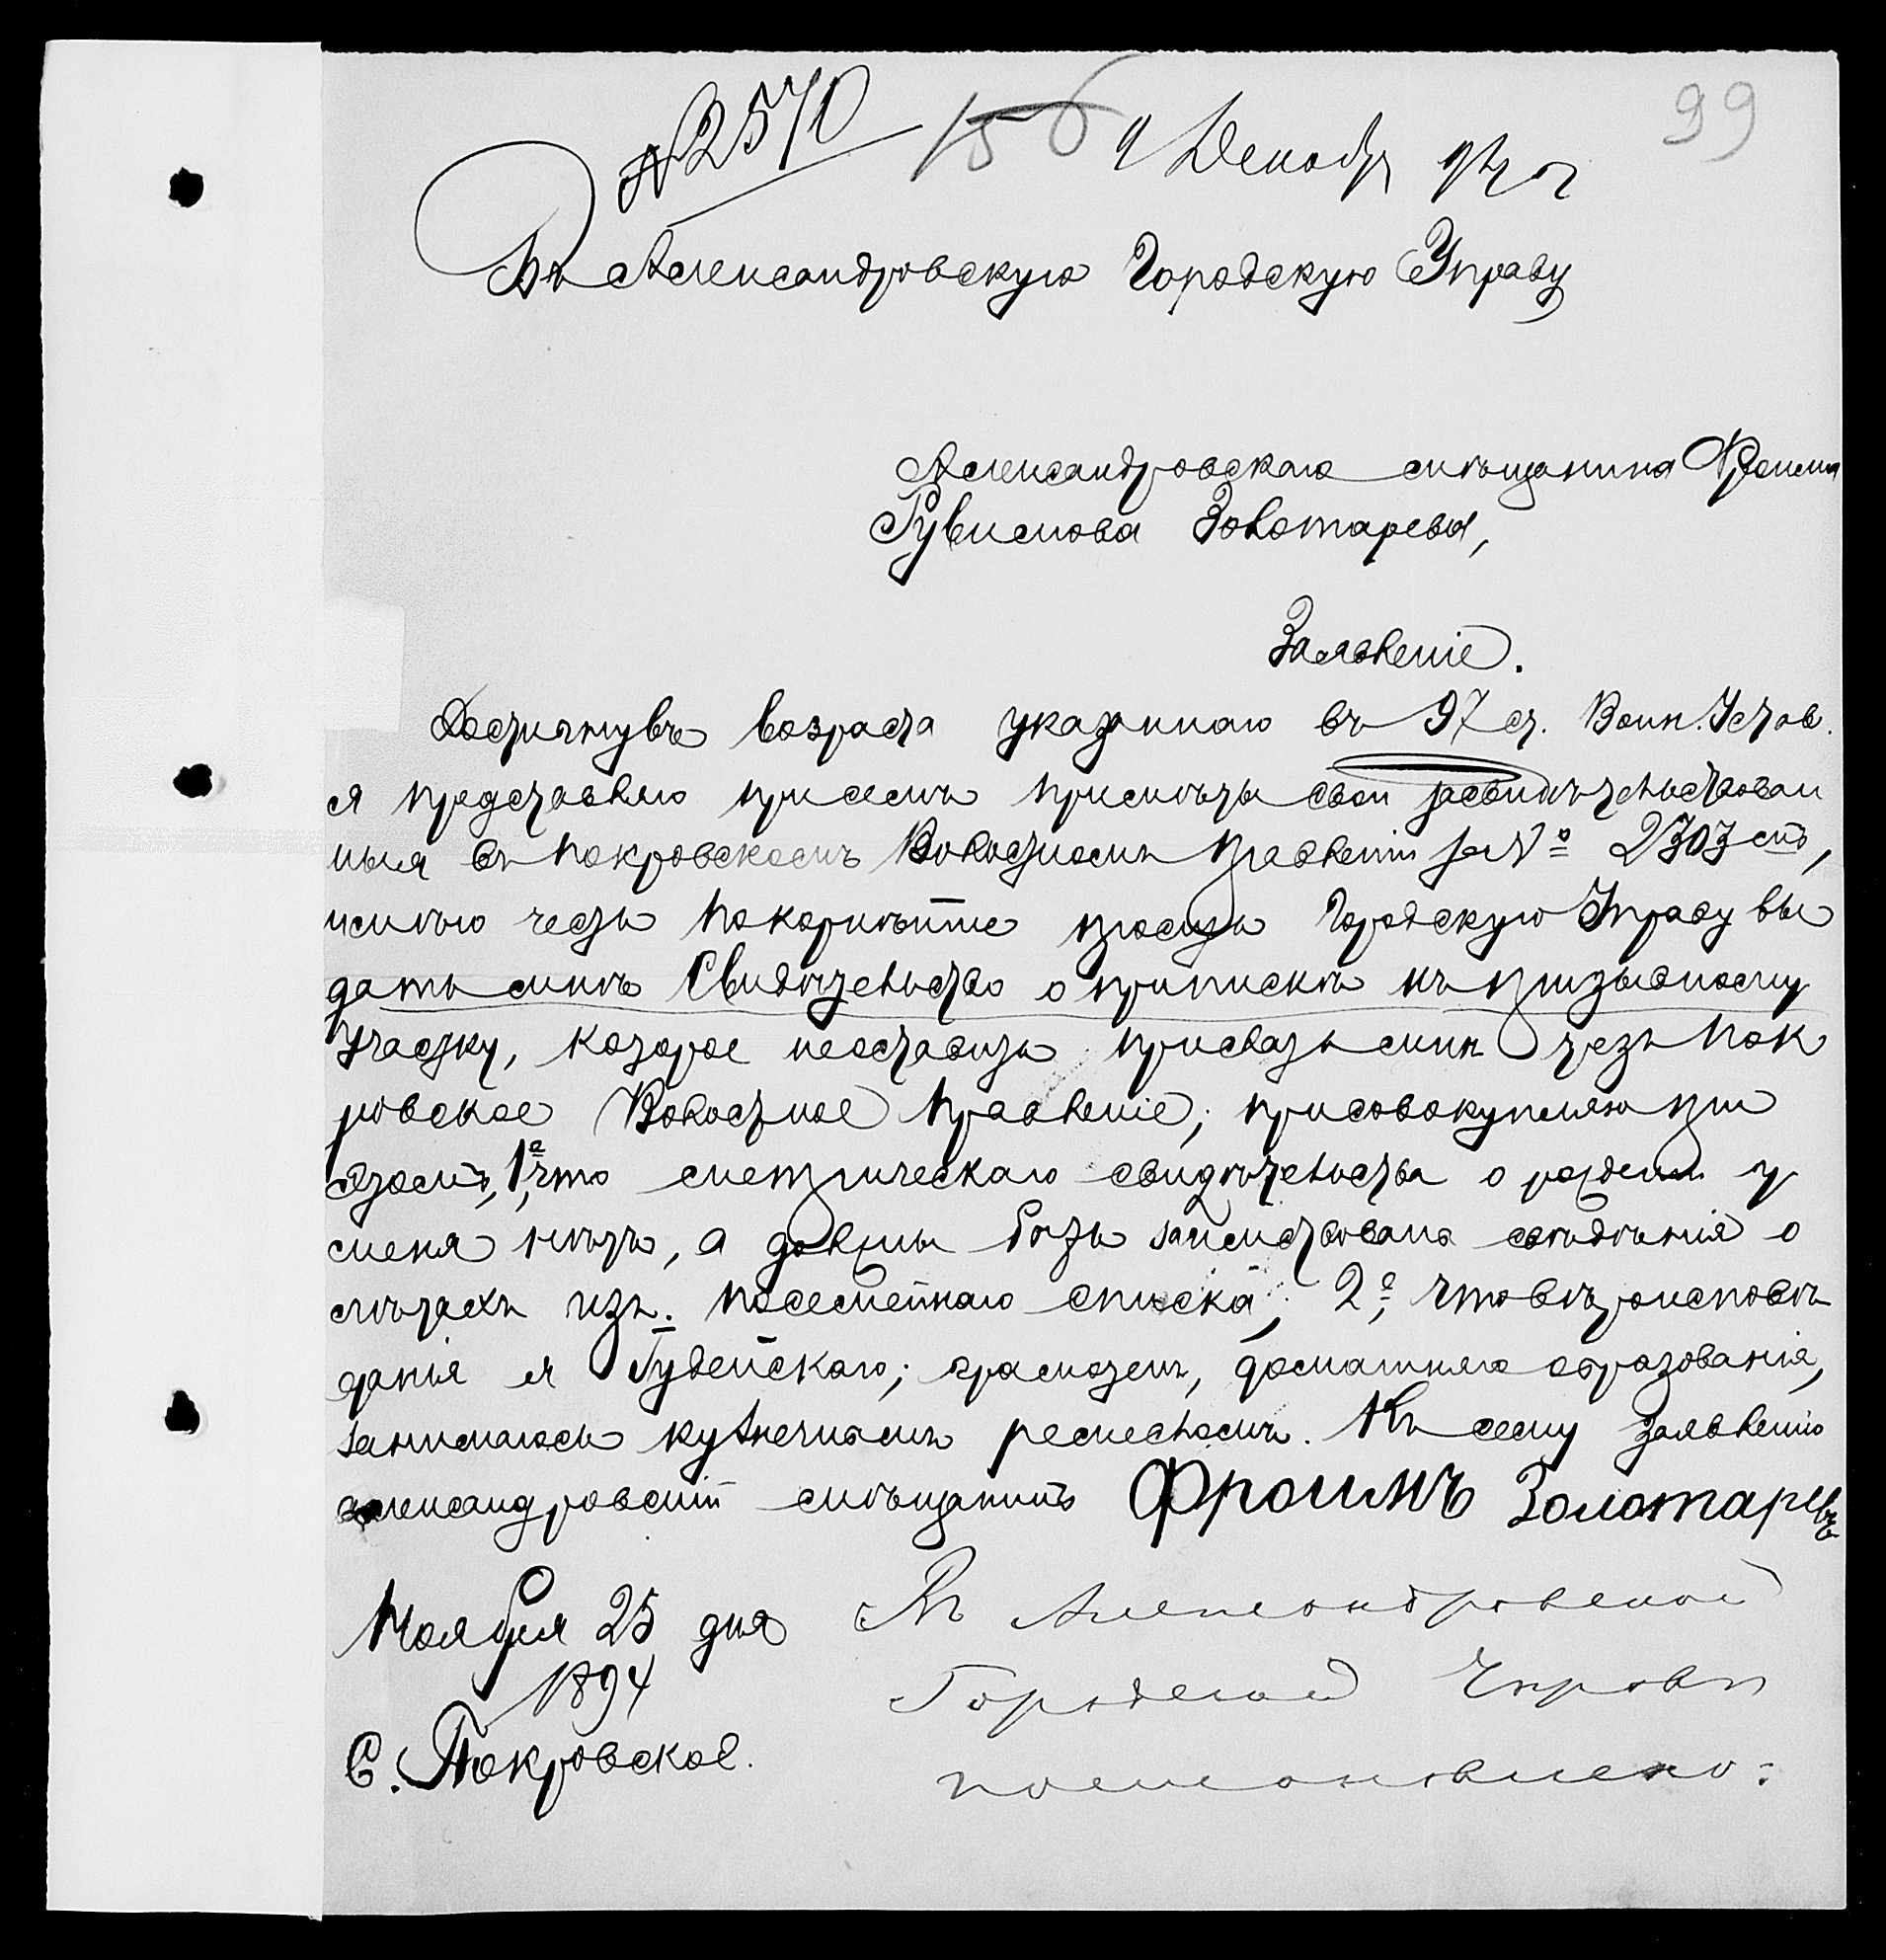 99
№ 2570 156 4 Декабр 94 г
Въ Александровскую Городскую Управу
Александровскаго мѣщанина Фроима
Рувимова Золотарева,
Заявленіе.
Достигнувъ возраста указаннаго въ 97 ст. Воин. Устав.
я представляю при семъ приметы свои засвидѣтельствован
ныя въ Покровскомъ Волостномъ Правленіи за № 2303 мъ,
имѣю честь покорнѣйше просить Городскую Управу вы
дать мнѣ Свидѣтельство о припискѣ къ призывному
участку, которое неоставить прислать мнѣ чрезъ Пок
ровское Волостное Правленіе; присовокупляю при
этомъ, 1е, что метрическаго свидѣтельства о рожденіи у
меня нѣтъ, а должны быть заимствована свѣдѣнія о
лѣтахъ изъ посемейнаго списка; 2е, что вѣроисповѣ
данія я Іудейскаго; грамотенъ, домашняго образованія,
занимаюсь кузнечнымъ ремесломъ. Къ сему заявленію
александровскій мѣщанинъ Фроимъ Золотаревъ
Ноября 25 дня
1894
С. Покровское.
Въ Александровской
Городской Управѣ
постановлено: